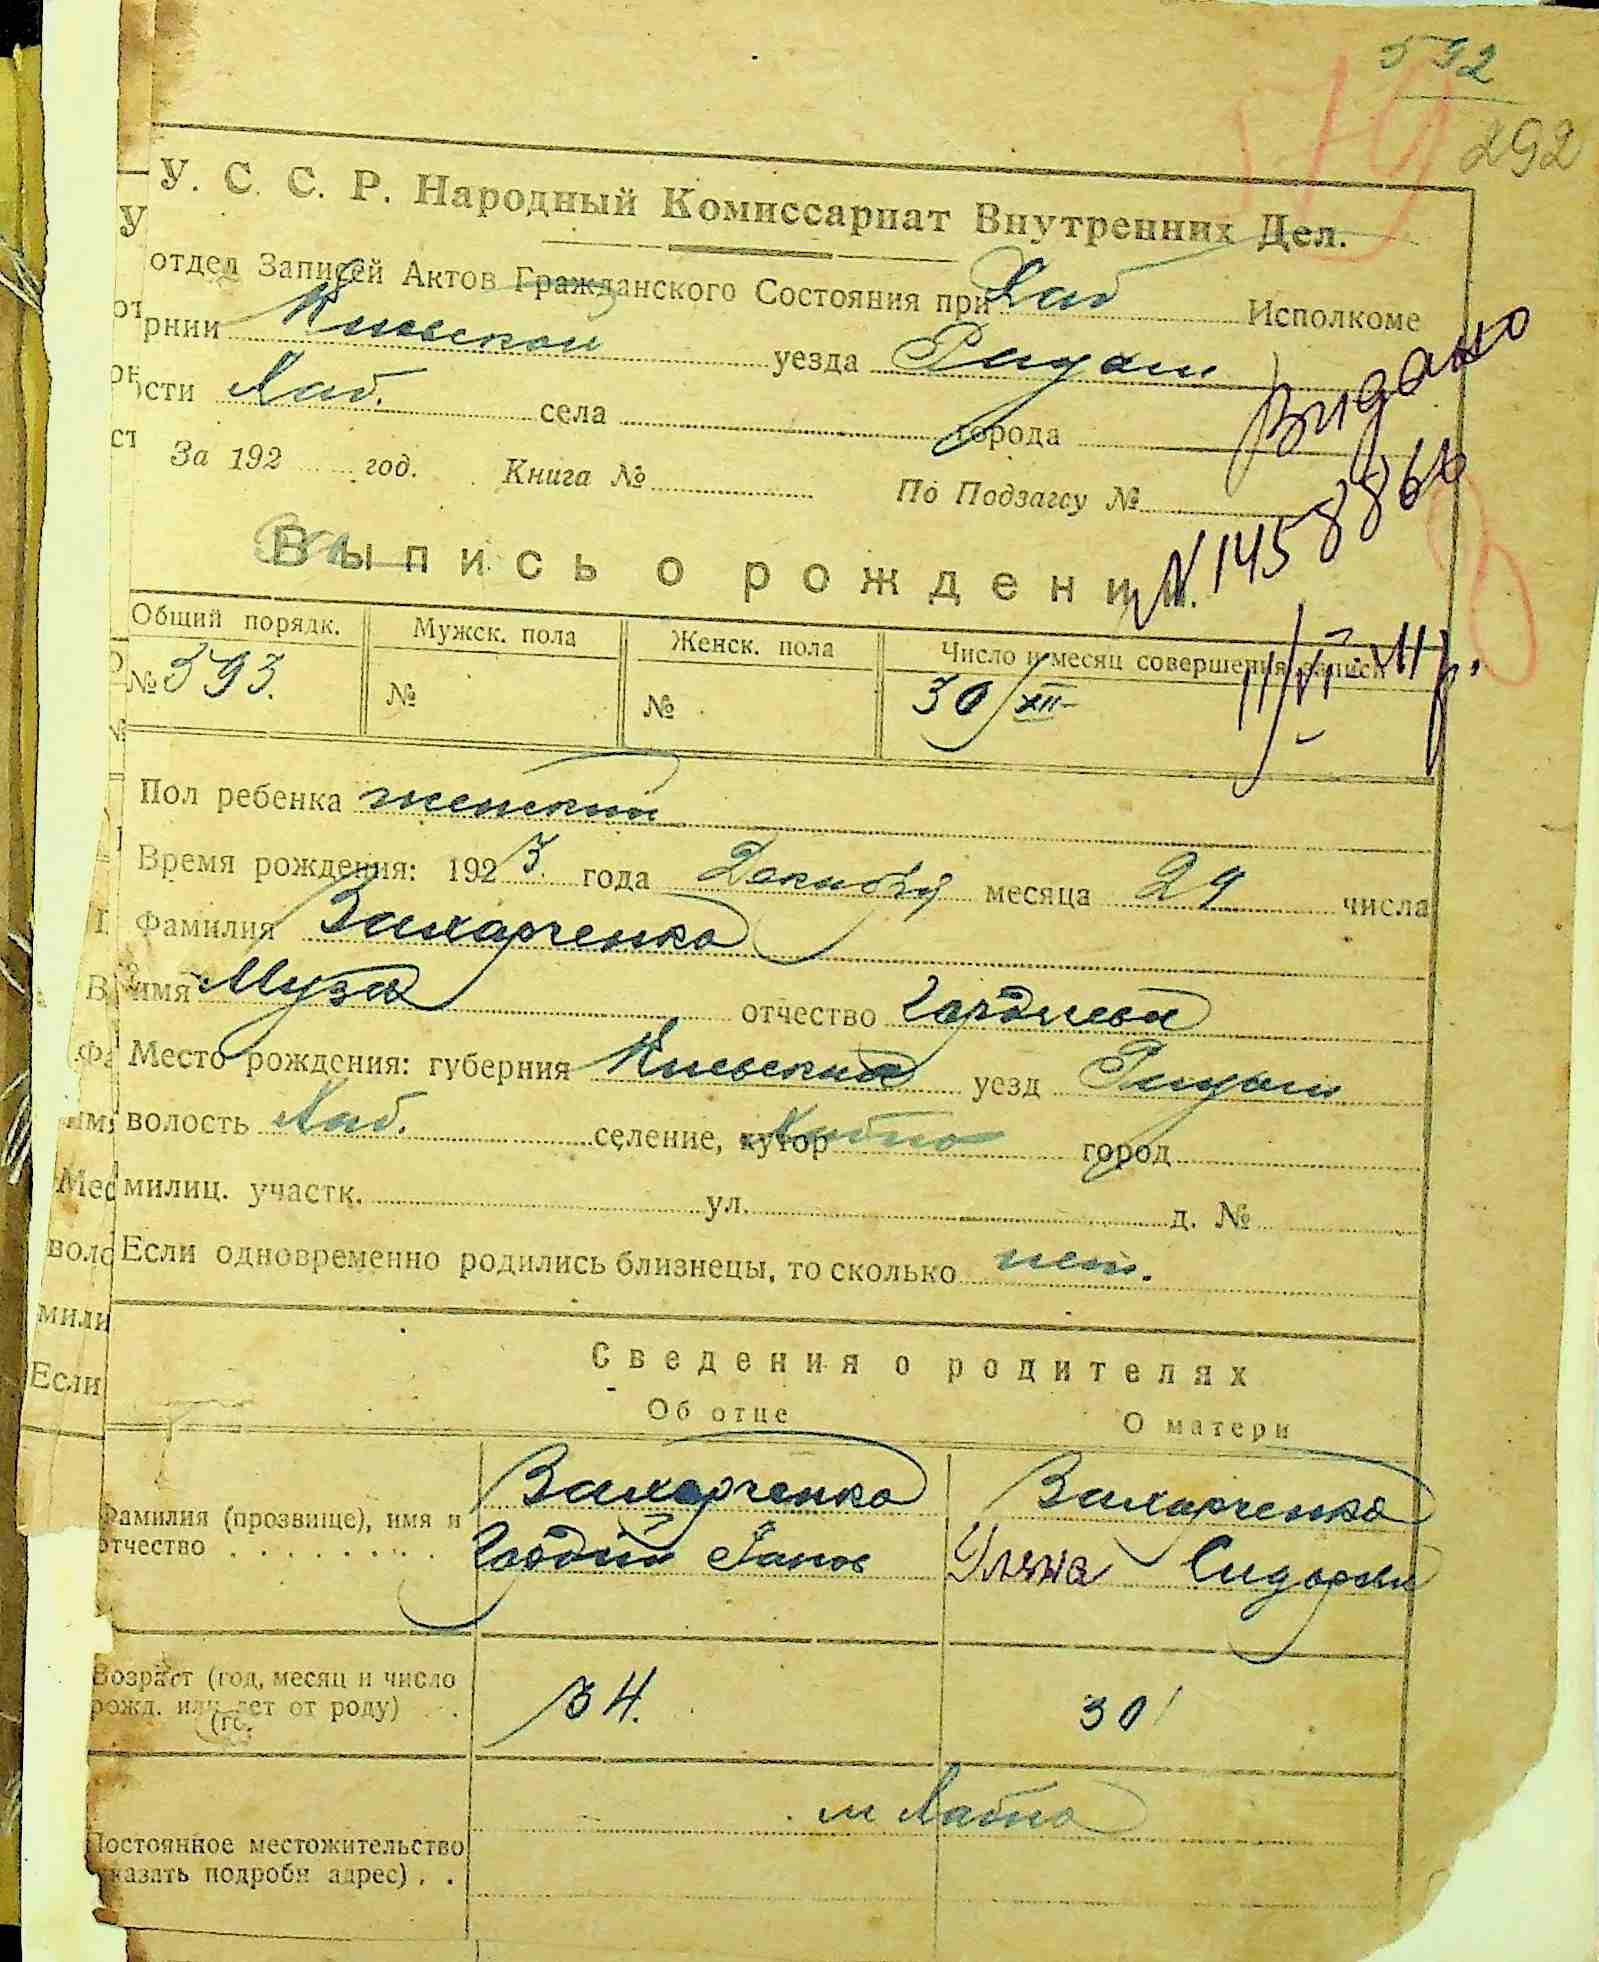 592
292
У. С. С. Р. Народный Комиссариат Внутренних Дел.
отдел Записей Актов Гражданского Состояния при Хаб Исполкоме
рнии Киевской уезда Радом
сти Хаб. села города
Видано
За 192 год. Книга № По Подзагсу №
N. 1458866
Выпись о рождении.
Общий порядк. Мужск. пола Женск. пола Число и месяц совершения записи
№ 393. № № 30/XII
Пол ребенка женский
Время рождения: 1923. года Декабря месяца 29 числа
Фамилия Захарченко
имя Муза отчество Гордеева
Место рождения: губерния Киевская уезд Радом
волость Хаб. селение, хутор Хабно город
милиц. участк. ул. д. №
Если одновременно родились близнецы, то сколько нет.
Сведения о родителях
Об отце О матери
Захарченко Захарченко
Фамилия (прозвище), имя и
отчество Гордий Уляна Сидоров
Возраст (год, месяц и число
рожд. или лет от роду) 34. 30
м Хабно
Постоянное местожительство
указать подробн адрес)